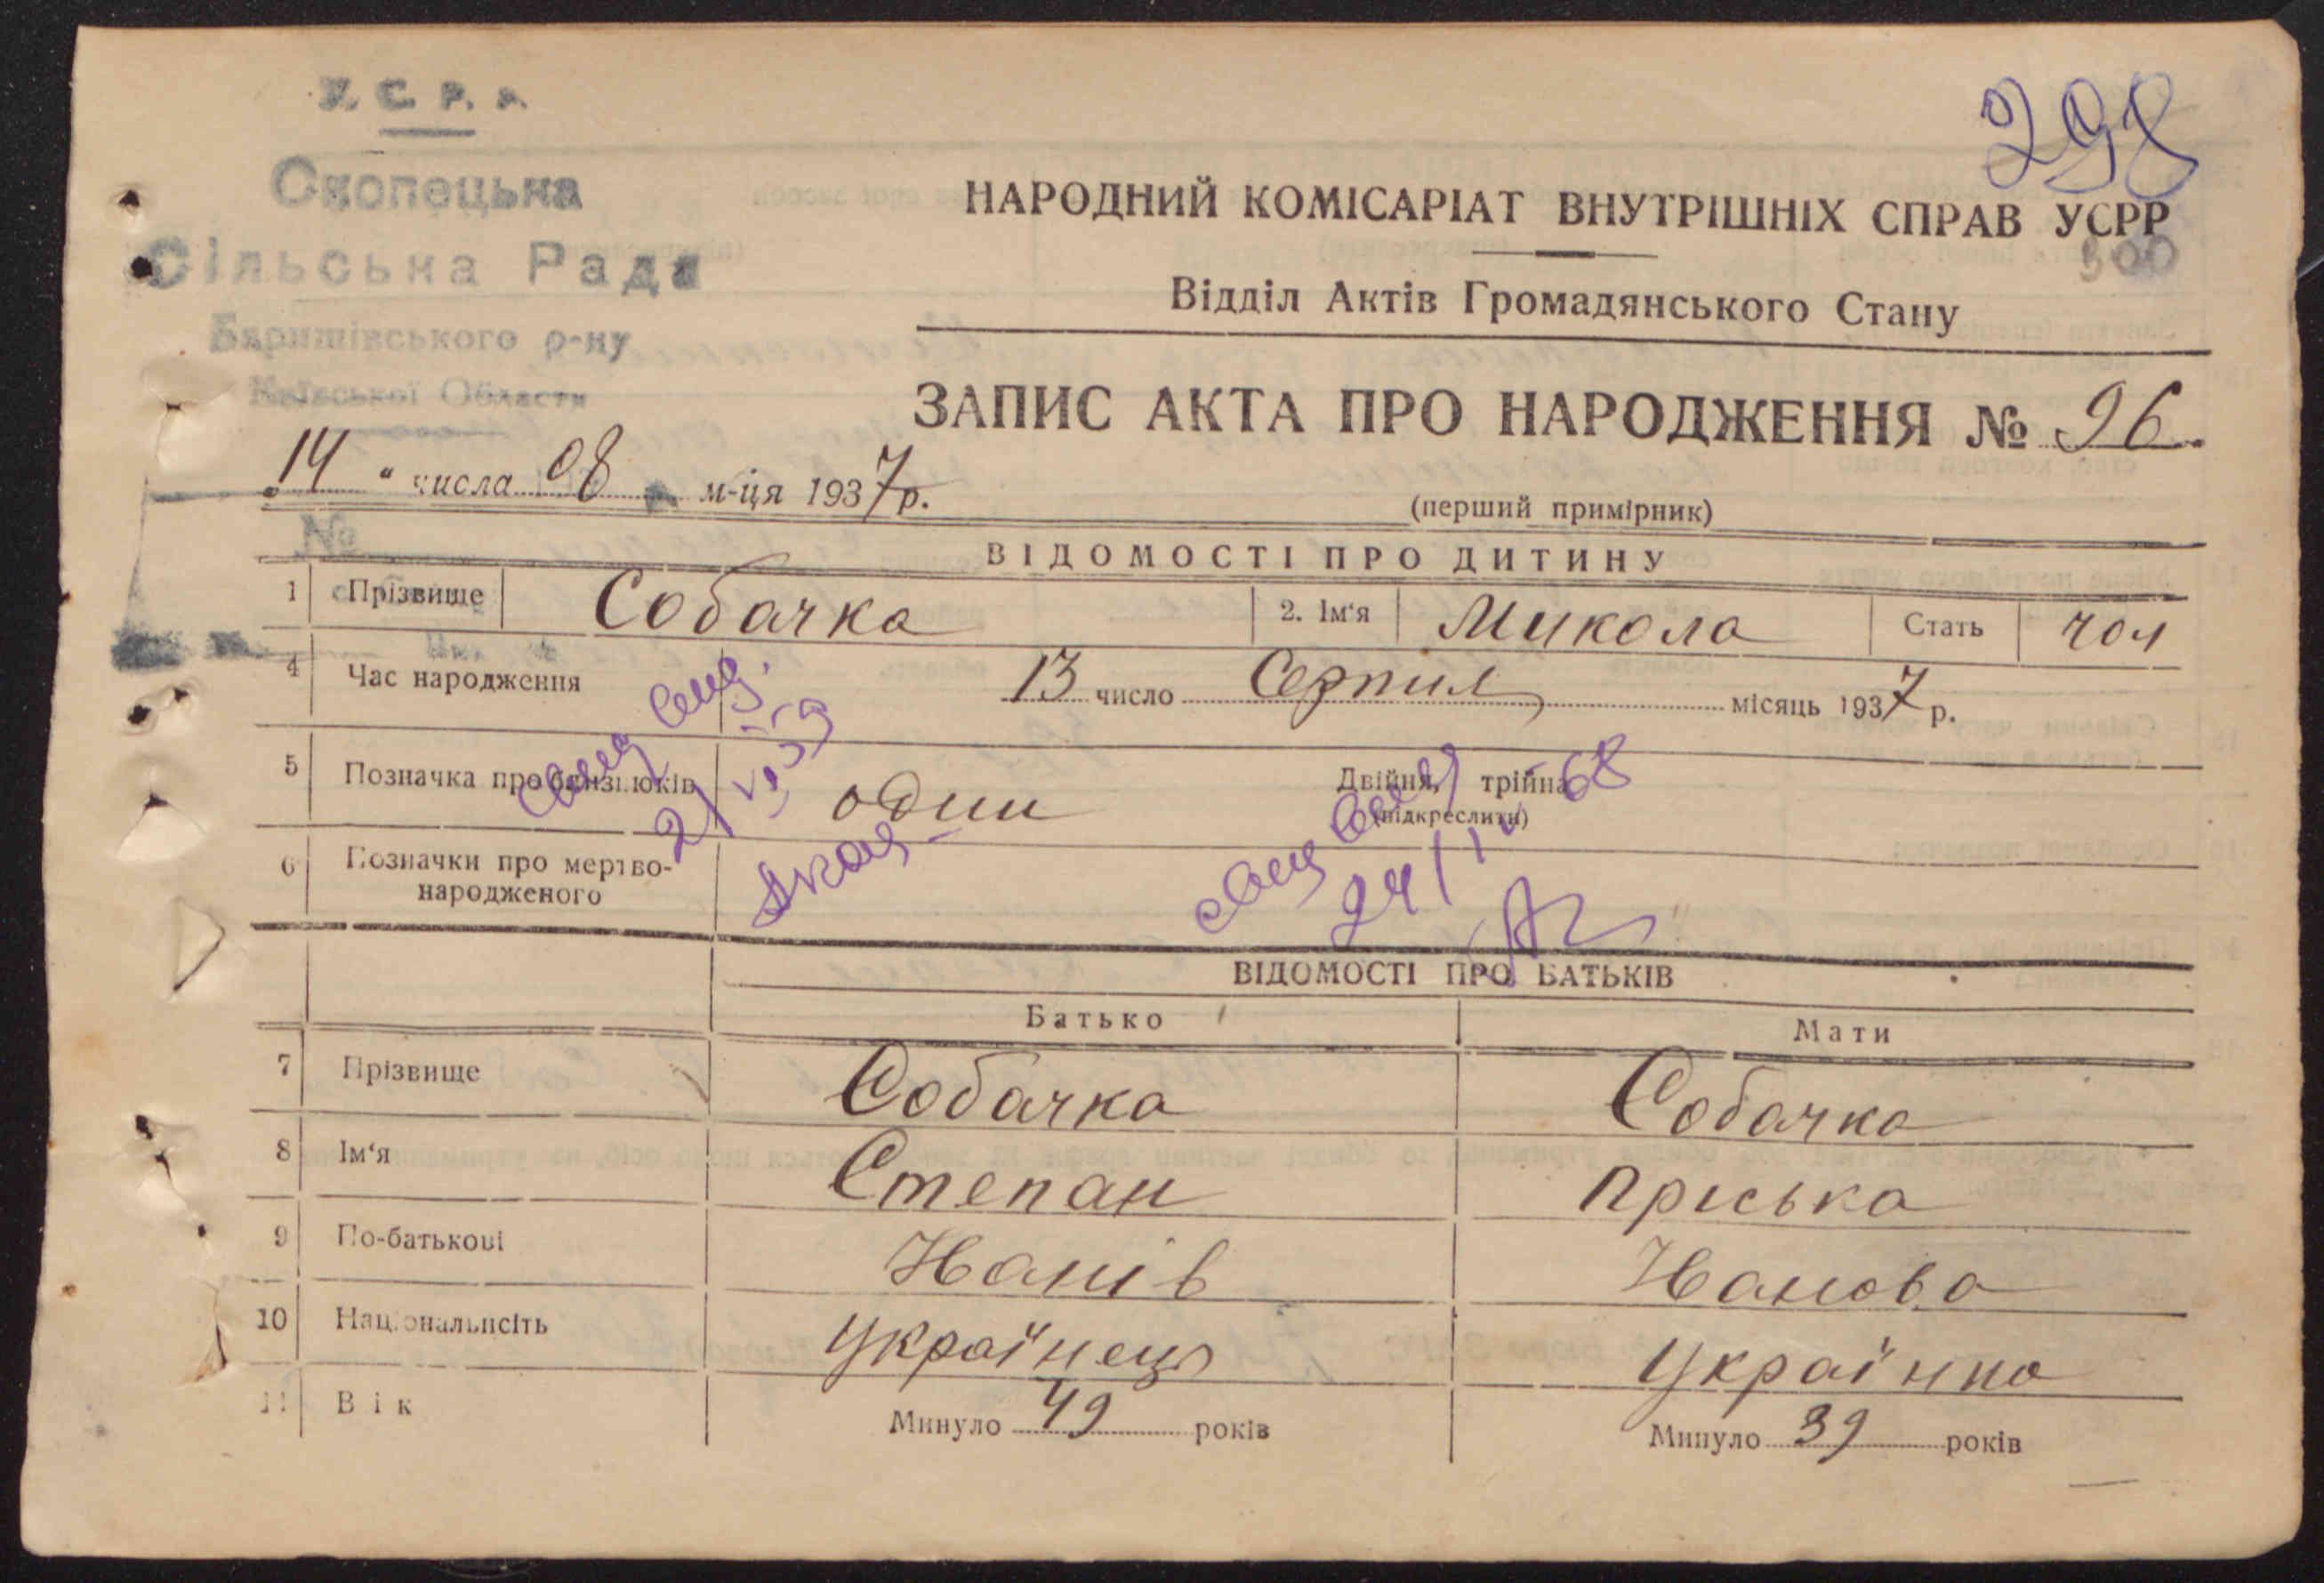 У. С. Р. Р.
Скопецька
Сільська Рада
Баришівського р-ну
Київської Области
298
НАРОДНИЙ КОМІСАРІАТ ВНУТРІШНІХ СПРАВ УСРР
300
Відділ Актів Громадянського Стану
ЗАПИС АКТА ПРО НАРОДЖЕННЯ № 96.
„14 “ числа 08 м-ця 1937 р.
(перший примірник)
№
ВІДОМОСТІ ПРО ДИТИНУ
1 Прізвище Собачка 2. Ім‘я Микола Стать чол
4 Час народження 13 число Серпня місяць 1937 р.
5 Позначка про близнюків один Двійня, трійня
(підкреслити)
21 VI 59
24/IV-68
6 Позначки про мертво-
народженого
ВІДОМОСТІ ПРО БАТЬКІВ
Батько Мати
7 Прізвище Собачка Собачка
8 Ім‘я Степан Приська
9 По-батькові Іванів Іванова
10 Національність Українець Українка
11 Вік Минуло 49 років Минуло 39 років